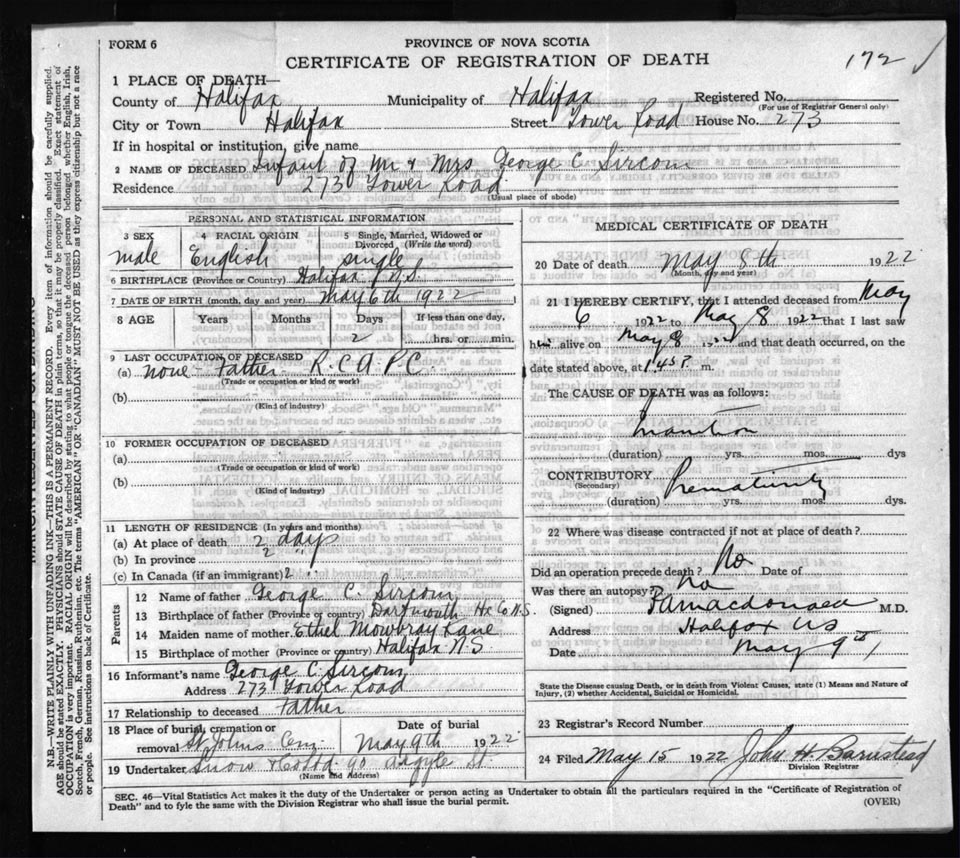 FORM 6
PROVINCE OF NOVA SCOTIA
CERTIFICATE OF REGISTRATION OF DEATH
172
1 PLACE OF DEATH—
County of Halifax Municipality of Halifax Registered No.
(For use of Registrar General only)
City or Town Halifax Street Tower Road House No. 273
If in hospital or institution, give name
2 NAME OF DECEASED Infant of Mr & Mrs George C Sircom
Residence 273 Tower Road
(Usual place of abode)
PERSONAL AND STATISTICAL INFORMATION
3 SEX 4 RACIAL ORIGIN 5 Single, Married, Widowed or Divorced (Write the word)
male English single
6 BIRTHPLACE (Province or Country) Halifax N.S.
7 DATE OF BIRTH (month, day and year) May 6th 1922
8 AGE Years Months Days If less than one day,
2 hrs. or min.
9 LAST OCCUPATION OF DECEASED
(a) none – Father R.C.A.P.C.
(Trade or occupation or kind or work)
(b)
(Kind of industry)
10 FORMER OCCUPATION OF DECEASED
(a)
(Trade or occupation or kind of work)
(b)
(Kind of industry)
11 LENGTH OF RESIDENCE (In years and months)
(a) At place of death 2 days
(b) In province 2 "
(c) In Canada (if an immigrant) 2
Parents
12 Name of father George C. Sircom
13 Birthplace of father (Province or country) Dartmouth Hx Co N.S.
14 Maiden name of mother Ethel Mowbray Lane
15 Birthplace of mother (Province or country) Halifax N.S.
16 Informant's name George C. Sircom
Address 273 Tower Road
17 Relationship to deceased Father
18 Place of burial, cremation or removal St Johns Cem Date of burial May 9th 1922
19 Undertaker Snow & Co Ltd 90 Argyle St.
(Name and Address)
MEDICAL CERTIFICATE OF DEATH
20 Date of death May 8th 1922
(Month, day and year)
21 I HEREBY CERTIFY, that I attended deceased from May
6 1922 to May 8 1922 that I last saw
him alive on May 8 1922 and that death occurred, on
date stated above, at 1.45 P. m.
The CAUSE OF DEATH was as follows:
Inanition
(duration) yrs. mos. dys
CONTRIBUTORY Prematurity
(Secondary)
(duration) yrs. mos. dys.
22 Where was disease contracted if not at place of death?
Did an operation precede death? No Date of
Was there an autopsy? No
(Signed) Macdonald M.D.
Address Halifax NS
Date May 9th
State the Disease causing Death, or in death from Violent Causes, state (1) Means and Nature of Injury, (2) whether Accidental, Suicidal or Homicidal.
23 Registrar's Record Number
24 Filed May 15 1922 John H Barnstead
Division Registrar
SEC. 46—Vital Statistics Act makes it the duty of the Undertaker or person acting as Undertaker to obtain all the particulars required in the "Certificate of Registration of
Death" and to fyle the same with the Division Registrar who shall issue the burial permit.
(OVER)
N.B.—WRITE PLAINLY WITH UNFADING INK—THIS IS A PERMANENT RECORD. Every item of information should be carefully supplied.
AGE should be stated EXACTLY. PHYSICIANS should STATE CAUSE OF DEATH in plain terms, so that it may be properly classified. Exact statement of
OCCUPATION is very important. RACIAL ORIGIN will be described by stating to what people or tongue the deceased person belonged whether English, Irish,
Scotch, French, German, Russian, Ruthenian, etc. The terms "AMERICAN" OR "CANADIAN" MUST NOT BE USED as they express citizenship but not a race
or people. See instructions on back of Certificate.